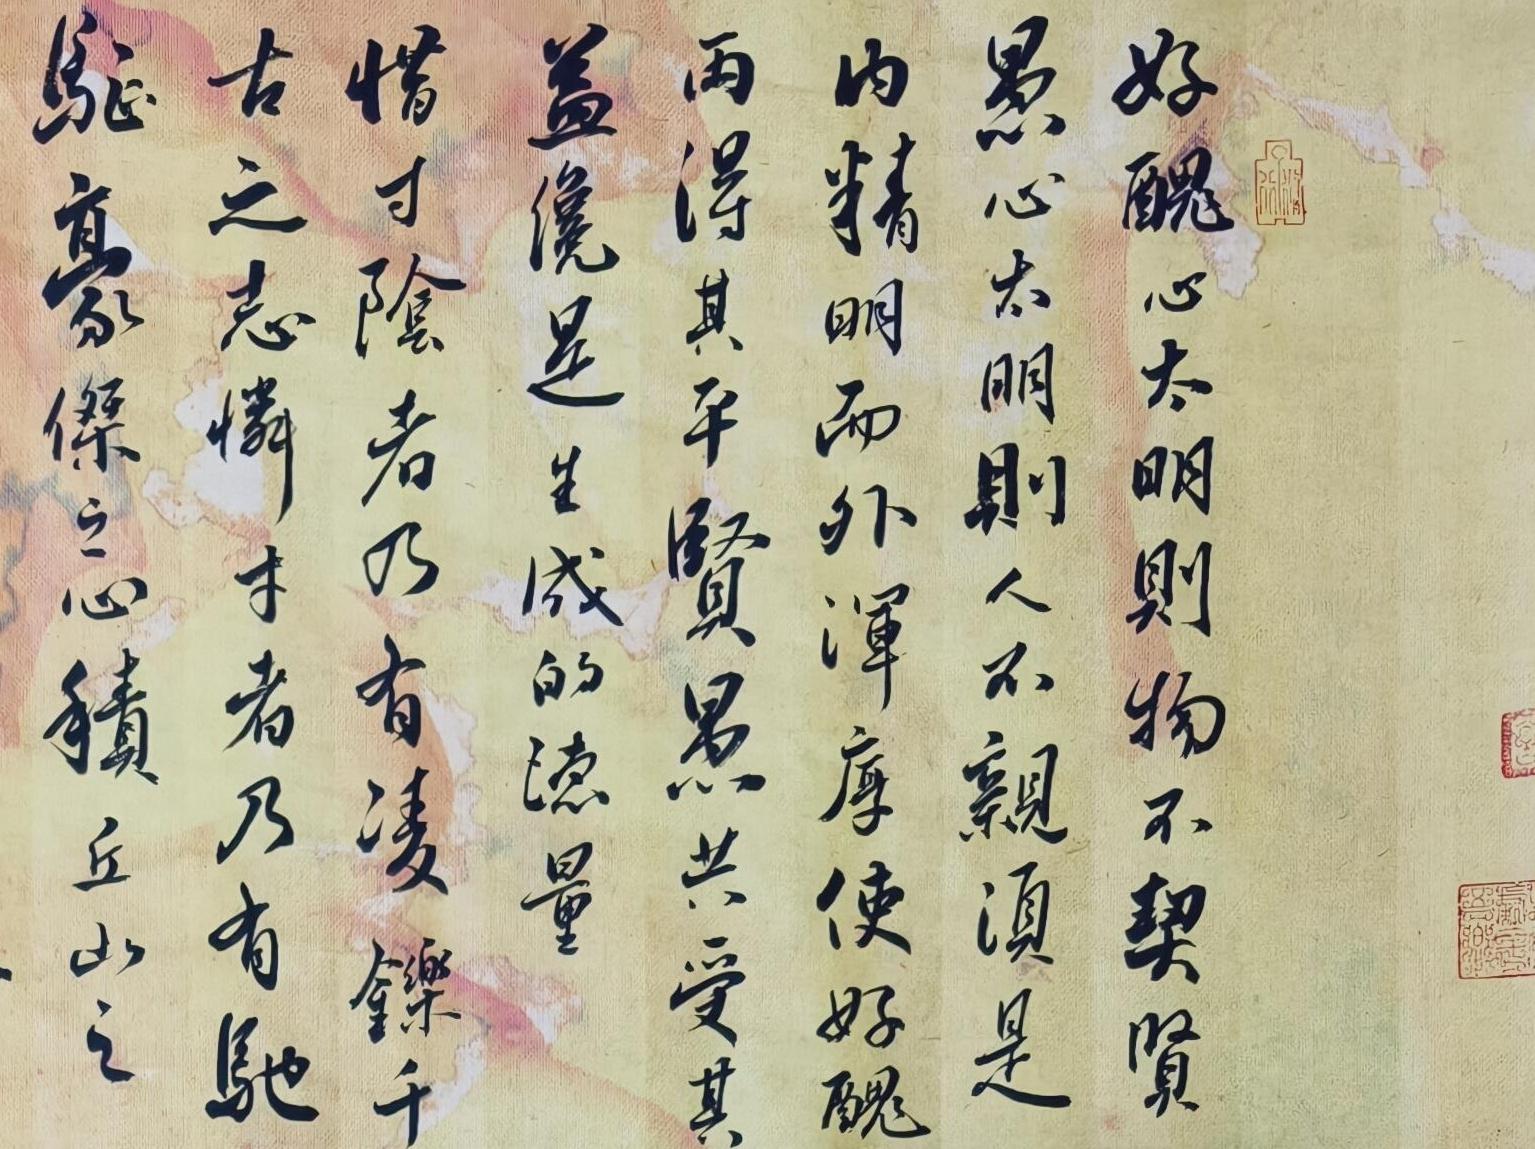 好醜心太明則物不契賢
愚心太明則人不親須是
內精明而外渾厚使好醜
兩得其平賢愚共受其
益儳是生成的德量
惜寸陰者乃有凌鑠千
古之志憐才者乃有馳
駈豪傑之心積丘山之